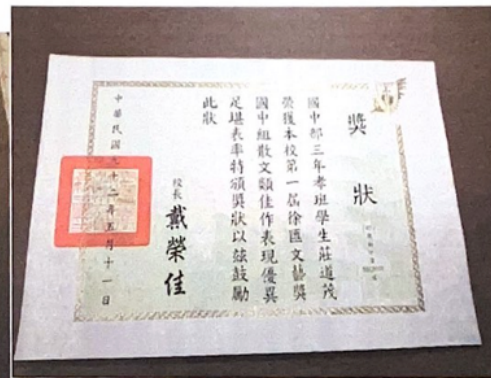 獎狀
國中部三年孝班學生莊道茂
榮獲本校第一屆徐匯文藝獎
國中組散文類佳作表現優異
足堪表率特頒獎狀以茲鼓勵
此狀
校長 戴榮佳
中華民國九十二年五月十一日